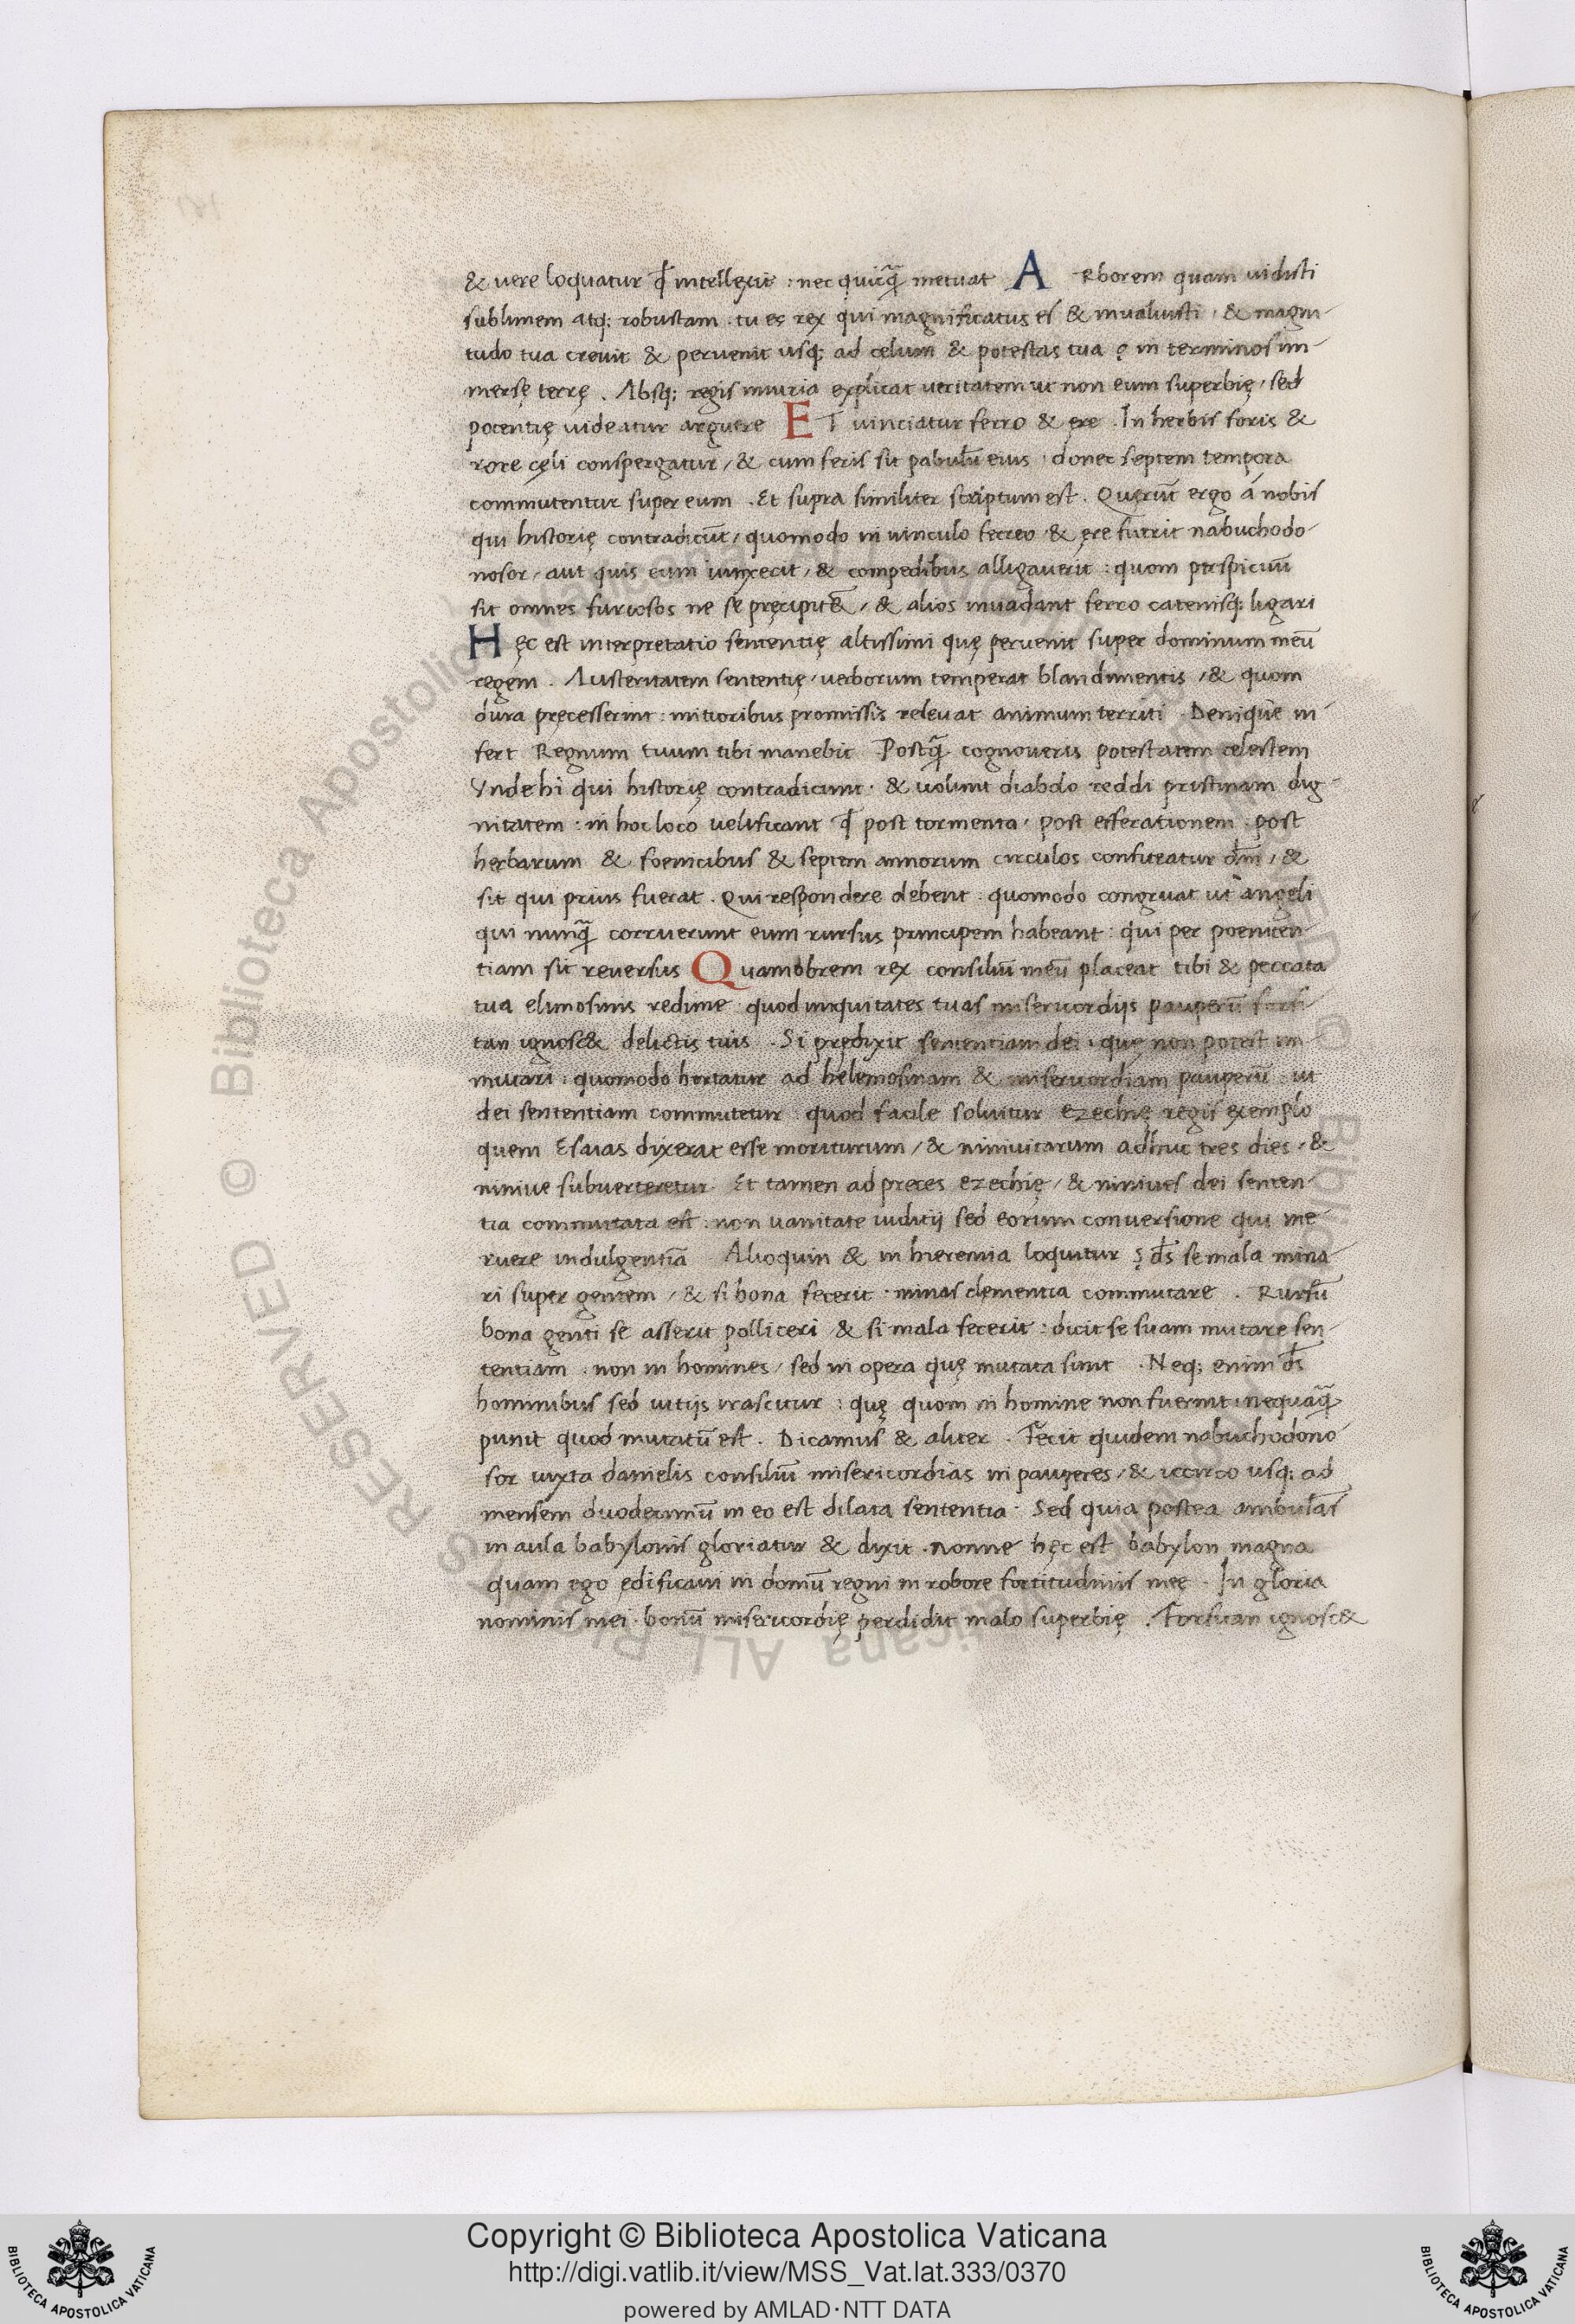 & uere loquatur qđ intellexit : nec quicq̃ metuat A Rborem quam uidisti
sublimem atq; robustam . tu es rex qui magnificatus es & inualuisti . & magni-
tudo tua creuit & peruenit usq; ad celum & potestas tua ę in terminos uni-
mersę terrę . Absq; regis iniuria explicat ueritatem ut non eum superbię / sed
potentię uideatur arguere ET uinciatur ferro & ęre . In herbis foris &
rore cęli conspergatur / & cum feris sit pabulū eius . donec septem tempora
commutentur super eum . Et supra similiter scriptum est . Quęrūt ergo á nobis
qui historię contradicūt / quomodo in uinculo ferreo & ęre fuerit nabuchodo-
nosor / aut quis eum iunxerit / & compedibus alligauerit : quom perspicuū
sit omnes furiosos ne se pręcipit& / & alios inuadant ferro catenisq; ligari
Hęc est interpretatio sententię altissimi quę peruenit super dominum meū
regem . Austeritatem sententię / uerborum temperat blandimentis / & quom
dura pręcesserint : mitioribus promissis releuat animum territi . Denique in-
fert Regnum tuum tibi manebit Postq̃ cognoueris potestatem celestem
Vnde hi qui historię contradicunt . & uolunt diabolo reddi pristinam dig-
nitatem : in hoc loco uelificant qđ post tormenta . post efferationem . post
herbarum & foenicibus & septem annorum circulos confiteatur dm̄ / &
sit qui prius fuerat . Qui respondere debent . quomodo congruat ut angeli
qui nunq̃ corruerunt eum rursus principem habeant : qui per poeniten-
tiam sit reuersus Quamobrem rex consiliū meū placeat tibi & peccata
tua elimosinis redime . quod iniquitates tuas misericordijs pauperū forsi-
tan ignosc& delictis tuis . Si prędixit sententiam dei . quę non potest im
mutari . quomodo hortatur ad helemosinam & misericordiam pauperū ut
dei sententiam commutetur quod facile soluitur ezechię regis exemplo
quem Esaias dixerat esse moriturum / & niniuitarum adhuc tres dies / &
niniue subuerteretur . Et tamen ad preces ezechię / & niniues dei senten-
tia commutata est . non uanitate iuditij sed eorum conuersione qui me-
ruere indulgentiā Alioquin & in hieremia loquitur ꝫ ds̄ se mala mina-
ri super gentem / & si bona fecerit . minas clementia commutare . Rursū
bona genti se asserit polliceri & si mala fecerit : dicit se suam mutare sen-
tentiam . non in homines / sed in opera quę mutata sunt . Neq; enim ds̄
hominibus sed uitijs irascitur : quę quom in homine non fuerint . nequaq̃
punit quod mutatū est . Dicamus & aliter . Fecit quidem nabuchodono
sor iuxta danielis consiliū misericordias in pauperes / & iccirco usq; ad
mensem duodecimū in eo est dilata sententia . Sed quia postea ambulās
in aula babylonis gloriatur & dixit . nonne hęc est babylon magna
quam ego ędificaui in domū regni in robore fortitudinis mee . In gloria
nominis mei . bonū misericordię perdidit malo superbię . Forsitan ignosc&
Copyright © Biblioteca Apostolica Vaticana
http://digi.vatlib.it/view/MSS_Vat.lat.333/0370
powered by AMLAD·NTT DATA